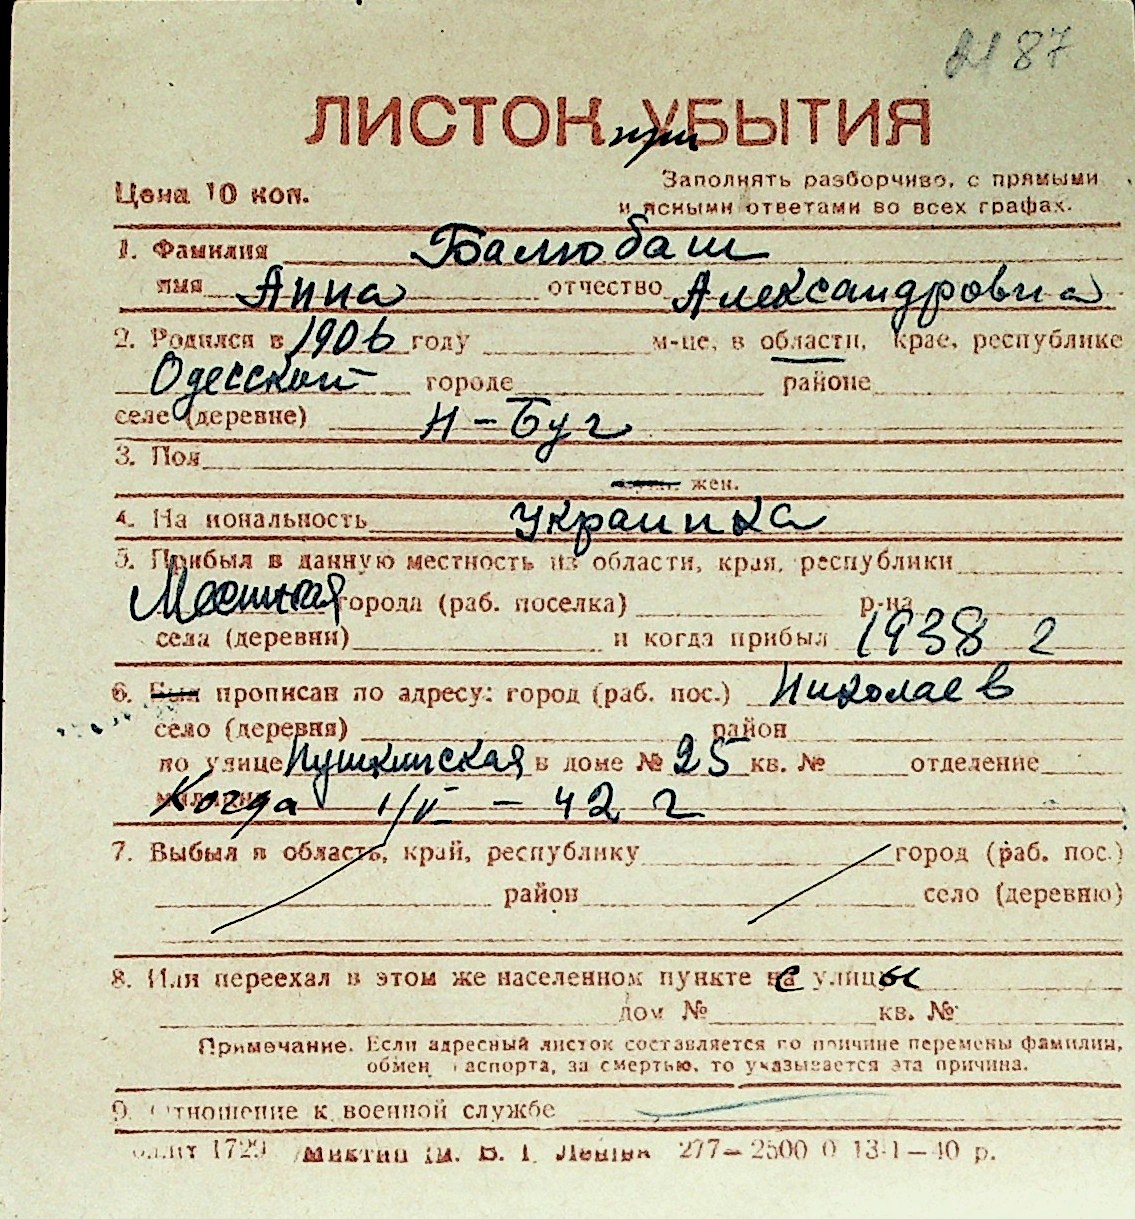 2187
ЛИСТОК УБЫТИЯ
при
Цена 10 коп.
Заполнять разборчиво, с прямыми
и ясными ответами во всех графах.
1. Фамилия Балюбаш
имя Анна отчество Александровна
2. Родился в 1906 году м-це, в области, крае, республике
Одесской городе районе
селе (деревне) Н-Буг
3. Пол
муж. жен.
4. На иональность украинка
5. Прибыл в данную местность из области, края, республики
Местная города (раб. поселка) р-на
села (деревни) и когда прибыл 1938 г
6. Был прописан по адресу: город (раб. пос.) Николаев
село (деревня) район
по улице Пушкинская в доме № 25 кв. № отделение
милиции Когда 1/V – 42 г
7. Выбыл в область, край, республику город (раб. пос.)
район село (деревню)
8. Или переехал в этом же населенном пункте с улицы
дом № кв. №
Примечание. Если адресный листок составляется по причине перемены фамилии,
обмен аспорта, за смертью, то указывается эта причина.
9. Отношение к военной службе
1729 277–2500 0 13-1–40 р.